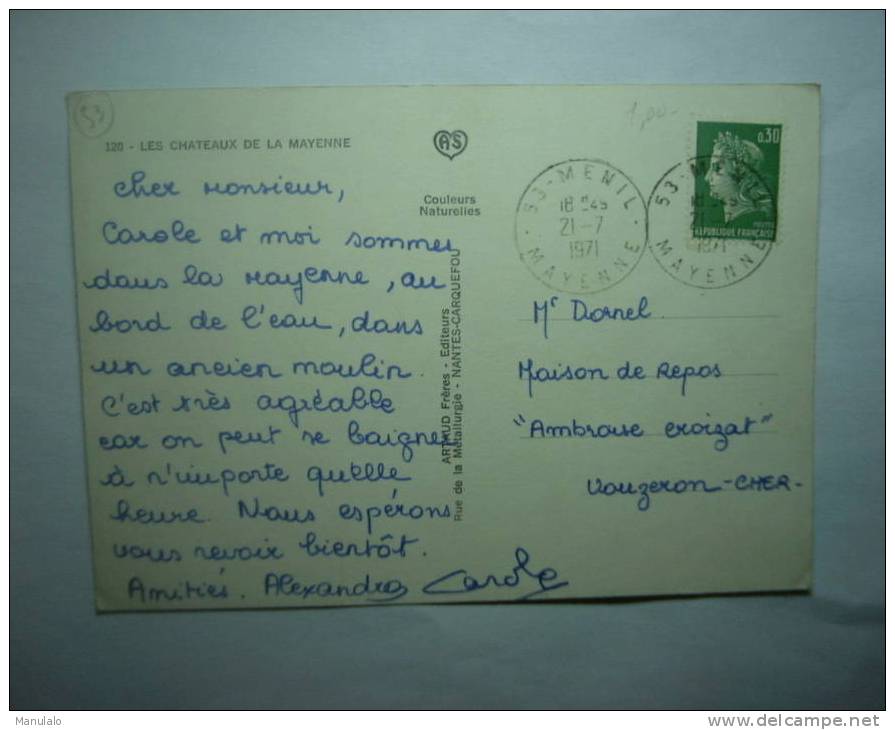 53
1,00-
120 - LES CHATEAUX DE LA MAYENNE
AS
Couleurs
Naturelles
0,30
POSTES
REPUBLIQUE FRANÇAISE
53 - MENIL
18H45
21-7
1971
MAYENNE
53 - MENIL
18H45
21-7
1971
MAYENNE
Cher Monsieur,
Carole et moi sommes
dans la Mayenne, au
bord de l'eau, dans
un ancien moulin.
C'est très agréable
car on peut se baigner
à n'importe quelle
heure. Nous espérons
vous revoir bientôt.
Amitiés. Alexandra Carole
ARTAUD Frères - Editeurs
Rue de la Métallurgie - NANTES-CARQUEFOU
Mr Dornel
Maison de Repos
"Ambroise croizat"
Vouzeron - CHER -
Manulalo
delcampe.net